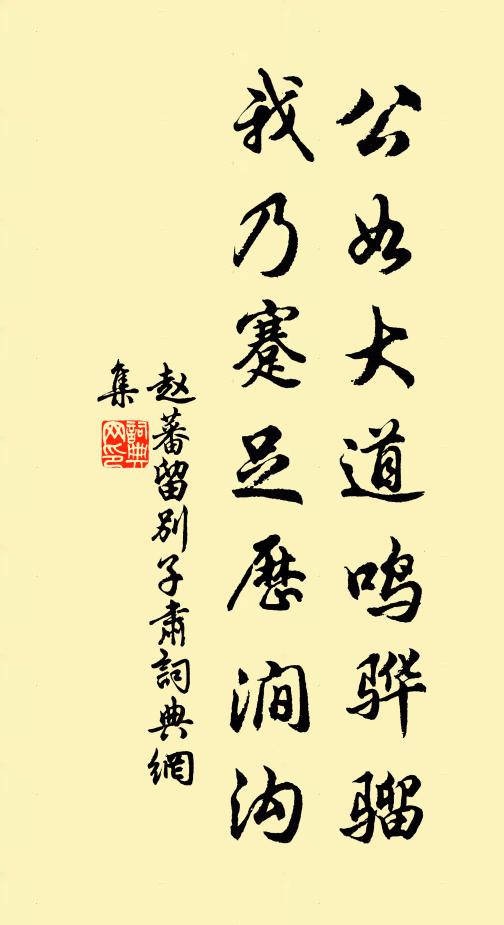 公如大道鸣骅骝
我乃蹇足历涧沟
赵蕃留别子肃詞典網
集
詞典网印